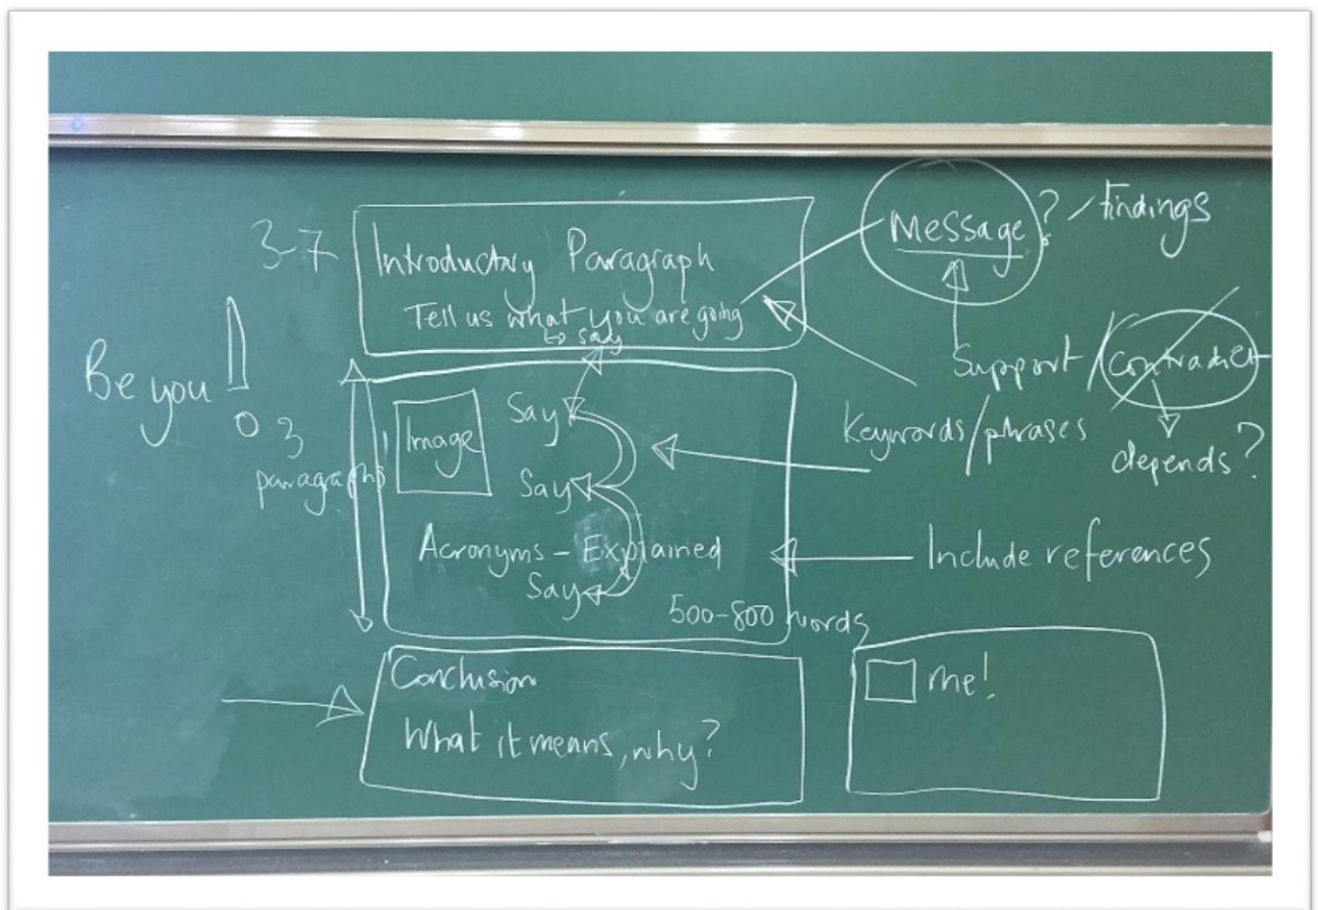 3-7
Introductory Paragraph
Tell us what you are going
to say
Message? / findings
Support / contradict
depends?
Keywords/phrases
Be you!
3
paragraphs
Image
Say
Say
Acronyms - Explained
Say
500-800 words
Include references
Conclusion
What it means, why?
me!